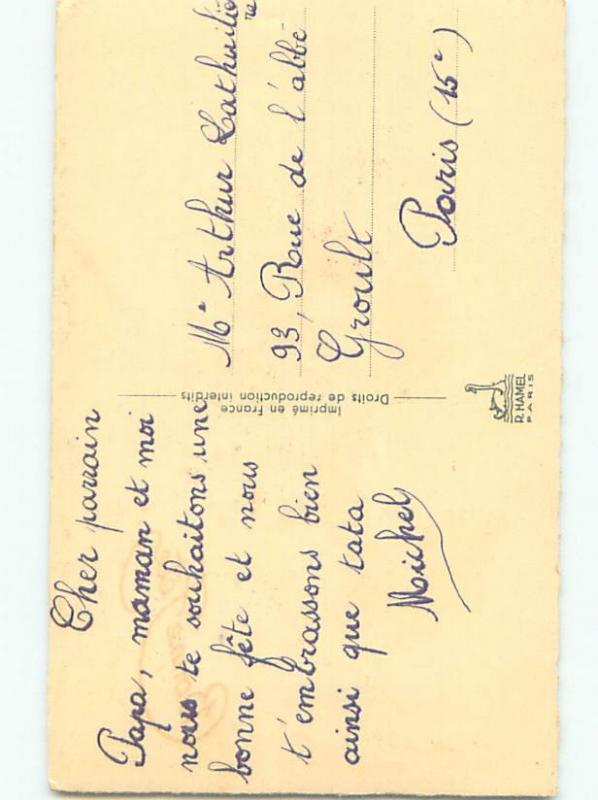 Cher parrain
Papa, maman et moi
nous te souhaitons une
bonne fête et nous
t'embrassons bien
ainsi que tata
Michel
Imprimé en France
Droits de reproduction interdits
R. HAMEL
PARIS
Mr Arthur Lathuilière
93, Rue de l'abbé
Groult
Paris (15e)